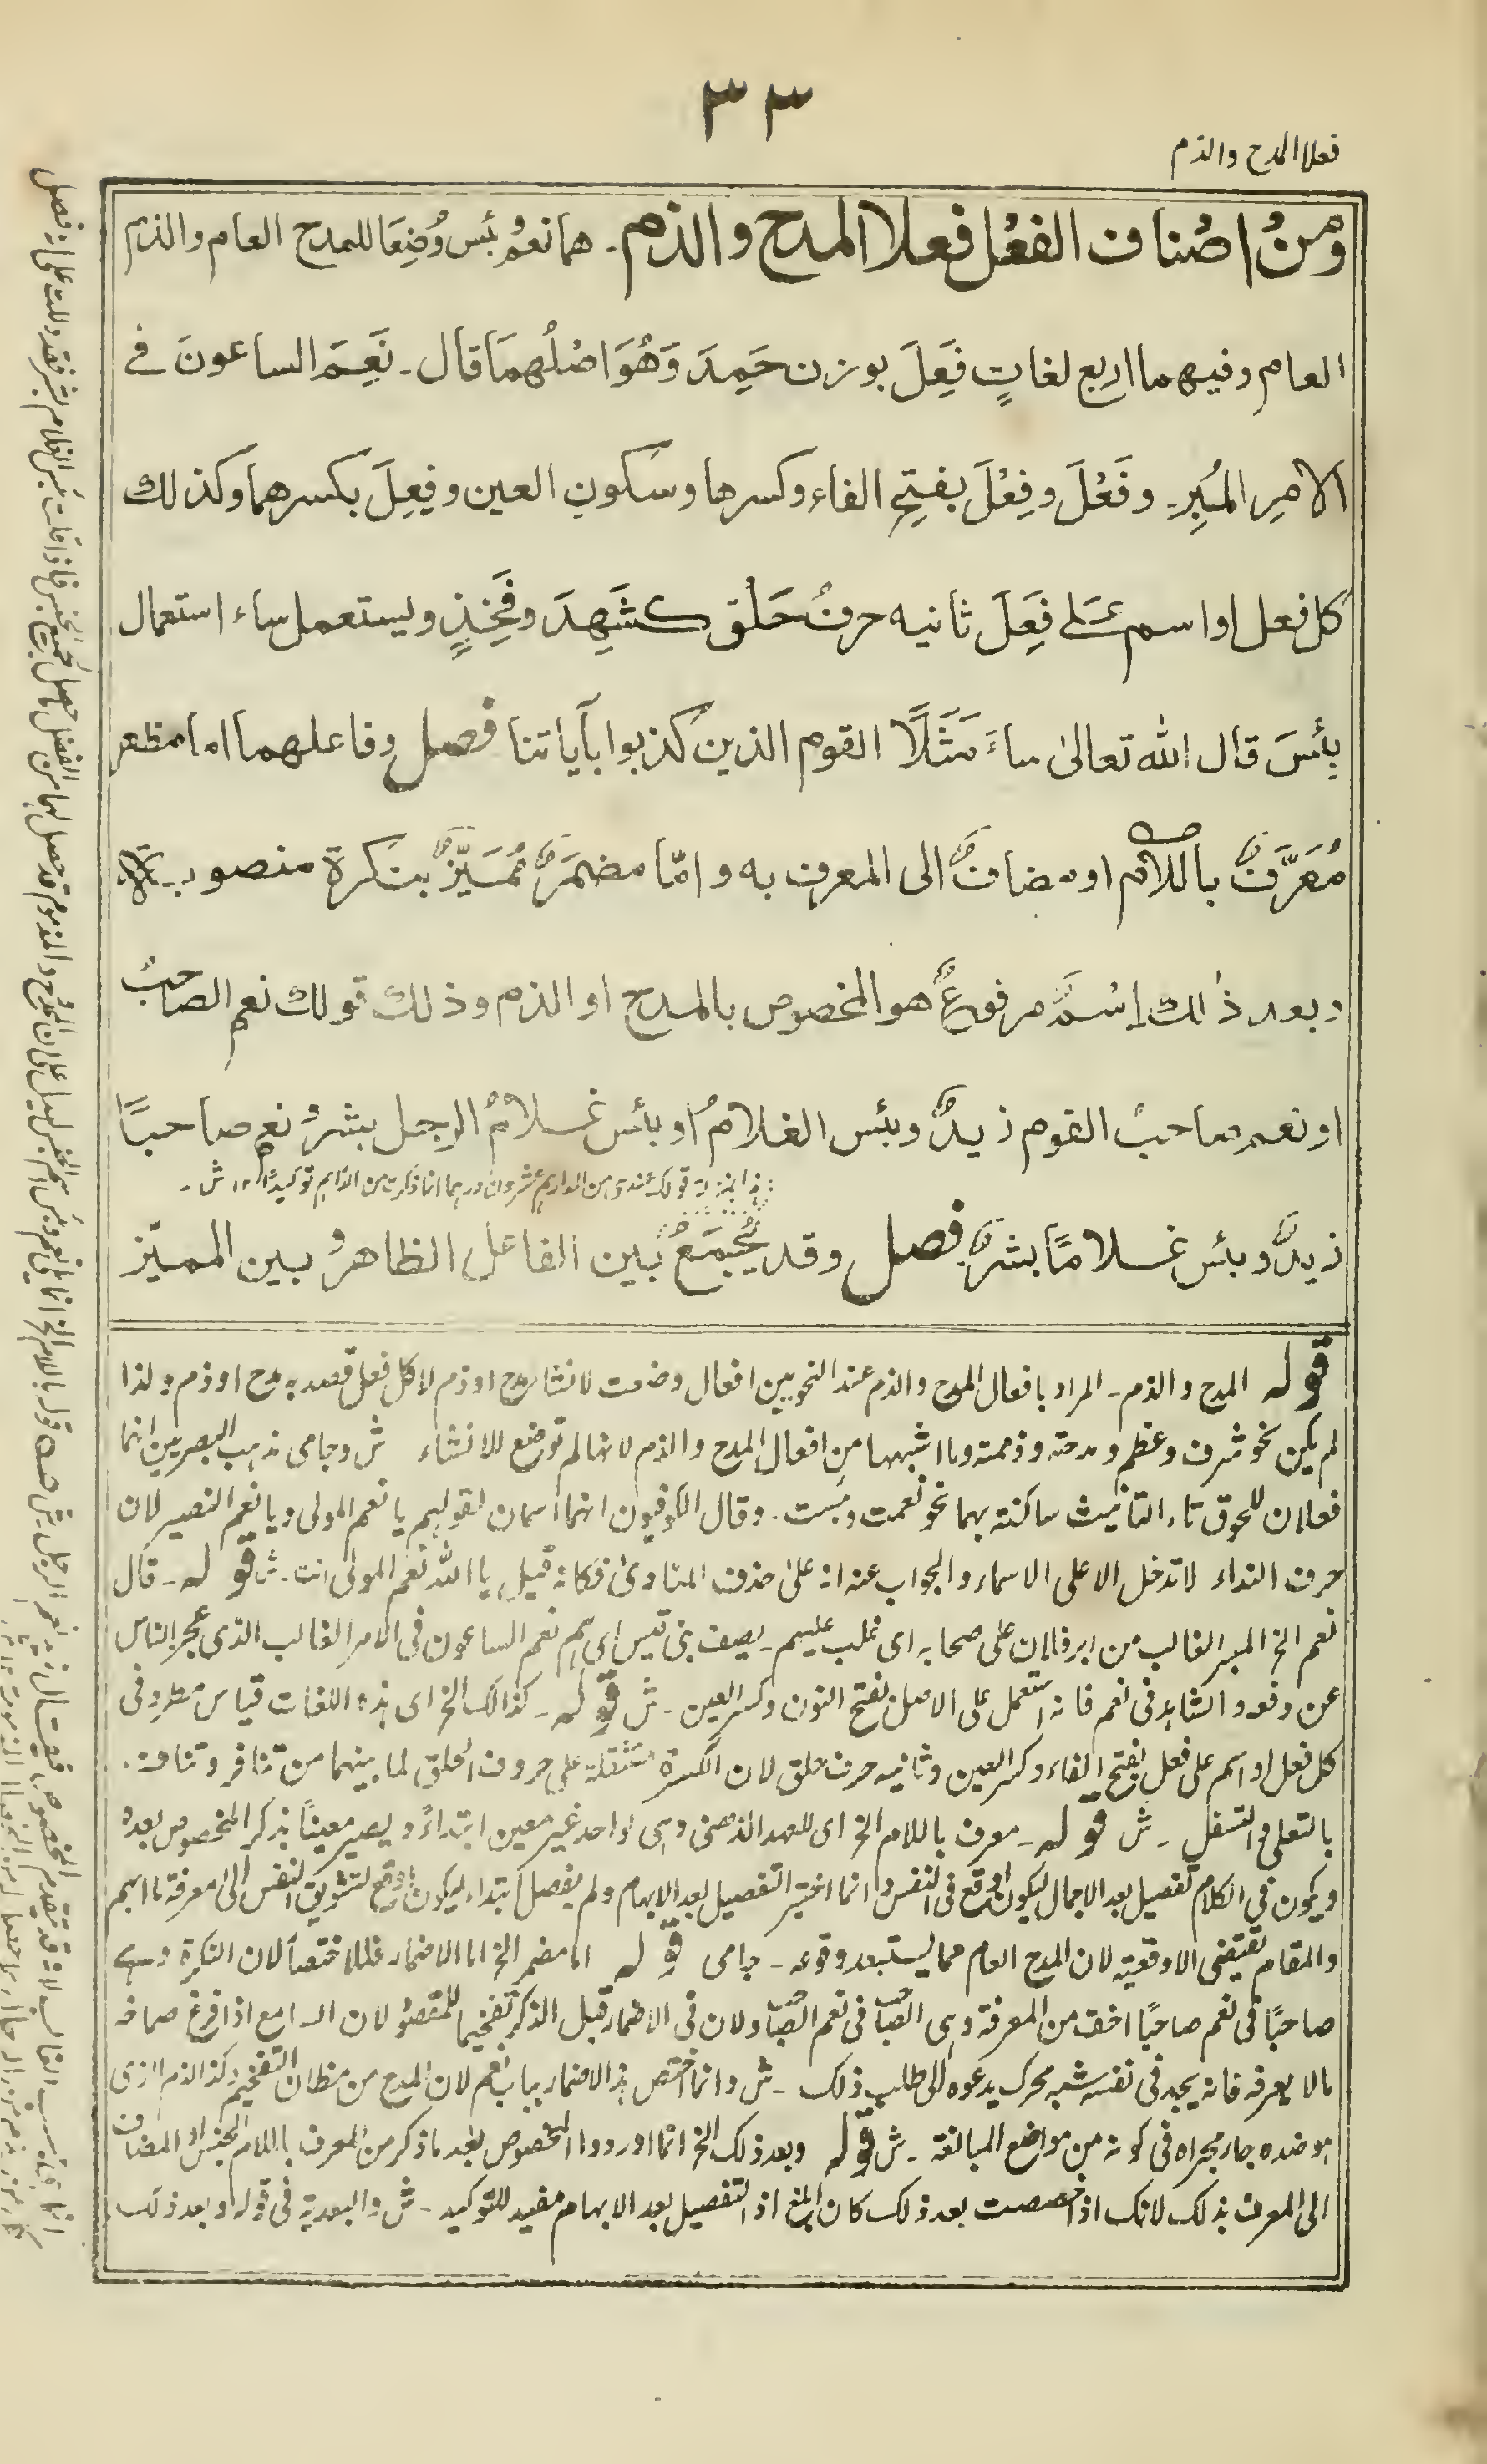 ٣٣
فعلا المدح والذم
وَمِنْ اصْناف الفعْل فعلا المدح والذم۔ هما نعْمَ بئس وُضِعَا للمدح العام والذم
العام وفيهما اربع لغاتٍ فَعِلَ بوزن حَمِدَ وَهُوَ اصْلُهمَا قال۔ نَعِمَ الساعونَ فے
الامرِ المُبِرِ۔ وفَعْلَ وفِعْلَ بفتحِ الفاء وكسرها وسكونِ العين وفِعِلَ بكسرهما وكذلك
كل فعل او اسم عَلى فَعِلَ ثانيه حرفُ حَلْق كشَهِدَ وفَخِذٍ ويستعمل ساء استعمال
بِئسَ قال الله تعالىٰ ساءَ مَثَلًا القوم الذين كذبوا بآياتنا فصل وفاعلهما اما مظهر
مُعَرَّفٌ باللام او مضافٌ الى المعرف به و امّا مضمَرٌ مُمَيَّزٌ بنكرة منصوبة
وبعد ذٰلك اِسْمٌ مرفوعٌ هو المخصوص بالمدح او الذم وذلك قولك نعم الصاحبُ
او نعم صاحبُ القوم زيدٌ وبئس الغلامُ او بئس غلامُ الرجل بشرٌ نعم صاحبًا
قولك عندى من الدراهم عشرون درهما انما ذكرت من الدراهم توكيدًا ١٢ ش۔
زيدٌ وبئس غلامًا بشرٌ۔ فصل وقد يُجْمَعُ بين الفاعل الظاهر وبين المميّز
قوله المدح والذم۔ المراد بافعال المدح والذم عند النحويين افعال وضعت لانشاء مدح او ذم لا كل فعل قصد به مدح او ذم ولذا
لم يكن نحو شرف وعظم ومدحته وذممته وما اشبهها من افعال المدح والذم لانها لم توضع للانشاء ش وجامى ذهب البصريين انهما
فعلان للحوق تاء التانيث ساكنة بهما نحو نعمت وبئست۔ وقال الكوفيون انهما اسمان لقولهم يا نعم المولى ويا نعم النصير لان
حرف النداء لا تدخل الا على الاسماء والجواب عنه انه علىٰ حذف المنادىٰ فكانه قيل يا الله نعم المولىٰ انت۔ ش قوله۔ قال
نعم الخ المبر الغالب من ابر فلان على صحابه اى غلب عليهم۔ يصف بنى قيس اى هم نعم الساعون فى الامر الغالب الذى عجز الناس
عن دفعه والشاهد فى نعم فانه استعمل على الاصل بفتح النون وكسر العين۔ ش قوله۔ كذالك الخ اى هذه اللغات قياس مطرد فى
كل فعل او اسم على فعل بفتح الفاء وكسر العين وثانيه حرف حلق لان الكسرة مستثقلة على حروف الحلق لما بينهما من تنافر وتناف۔
بالتعلى والتسفل۔ ش قوله۔ معرف باللام الخ اى للعهد الذهنى وهى لواحد غير معين ابتداءً ويصير معينًا بذكر المخصوص بعده
ويكون فى الكلام تفصيل بعد الاجمال ليكون اوقع فى النفس وانما اختير التفصيل بعد الابهام ولم يفصل ابتداء ليكون اوقع لتشويق النفس الىٰ معرفة ما ابهم
والمقام يقتضى الاوقعية لان المدح العام مما يستبعد وقوعه۔ جامى قوله اما مضمر الخ اما الاضمار فللاختصار لان النكرة وهے
صاحبًا فى نعم صاحبًا اخف من المعرفة وهى الصاحب فى نعم الصاحب ولان فى الاضمار قبل الذكر تفخيما للمقصود لان السامع اذا فرغ صماخه
مالا يعرفه فانه يجد فى نفسه شبه محرك يدعوه الى طلب ذلك۔ ش وانما اختص هذا الاضمار بباب نعم لان المدح من مظان التفخيم وكذ الذم الذى
هو ضده جار مجراه فى كونه من مواضع المبالغة۔ ش قوله وبعد ذلك الخ انما اوردوا المخصوص بعد ما ذكر من المعرف باللام الجنس او المضاف
الى المعرف بذلك لانك اذا خصصت بعد ذلك كان ابلغ اذ التفصيل بعد الابهام مفيد للتوكيد۔ ش والبعدية فى قوله وبعد ذلك